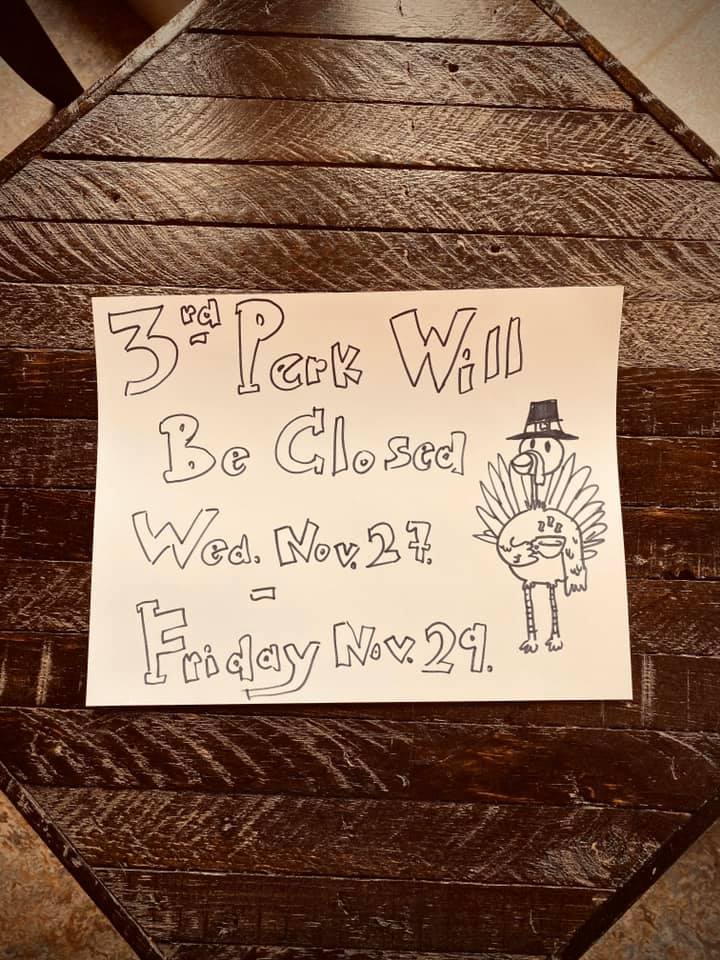 3rd Perk Will
Be Closed
Wed. Nov. 27.
-
Friday Nov. 29.